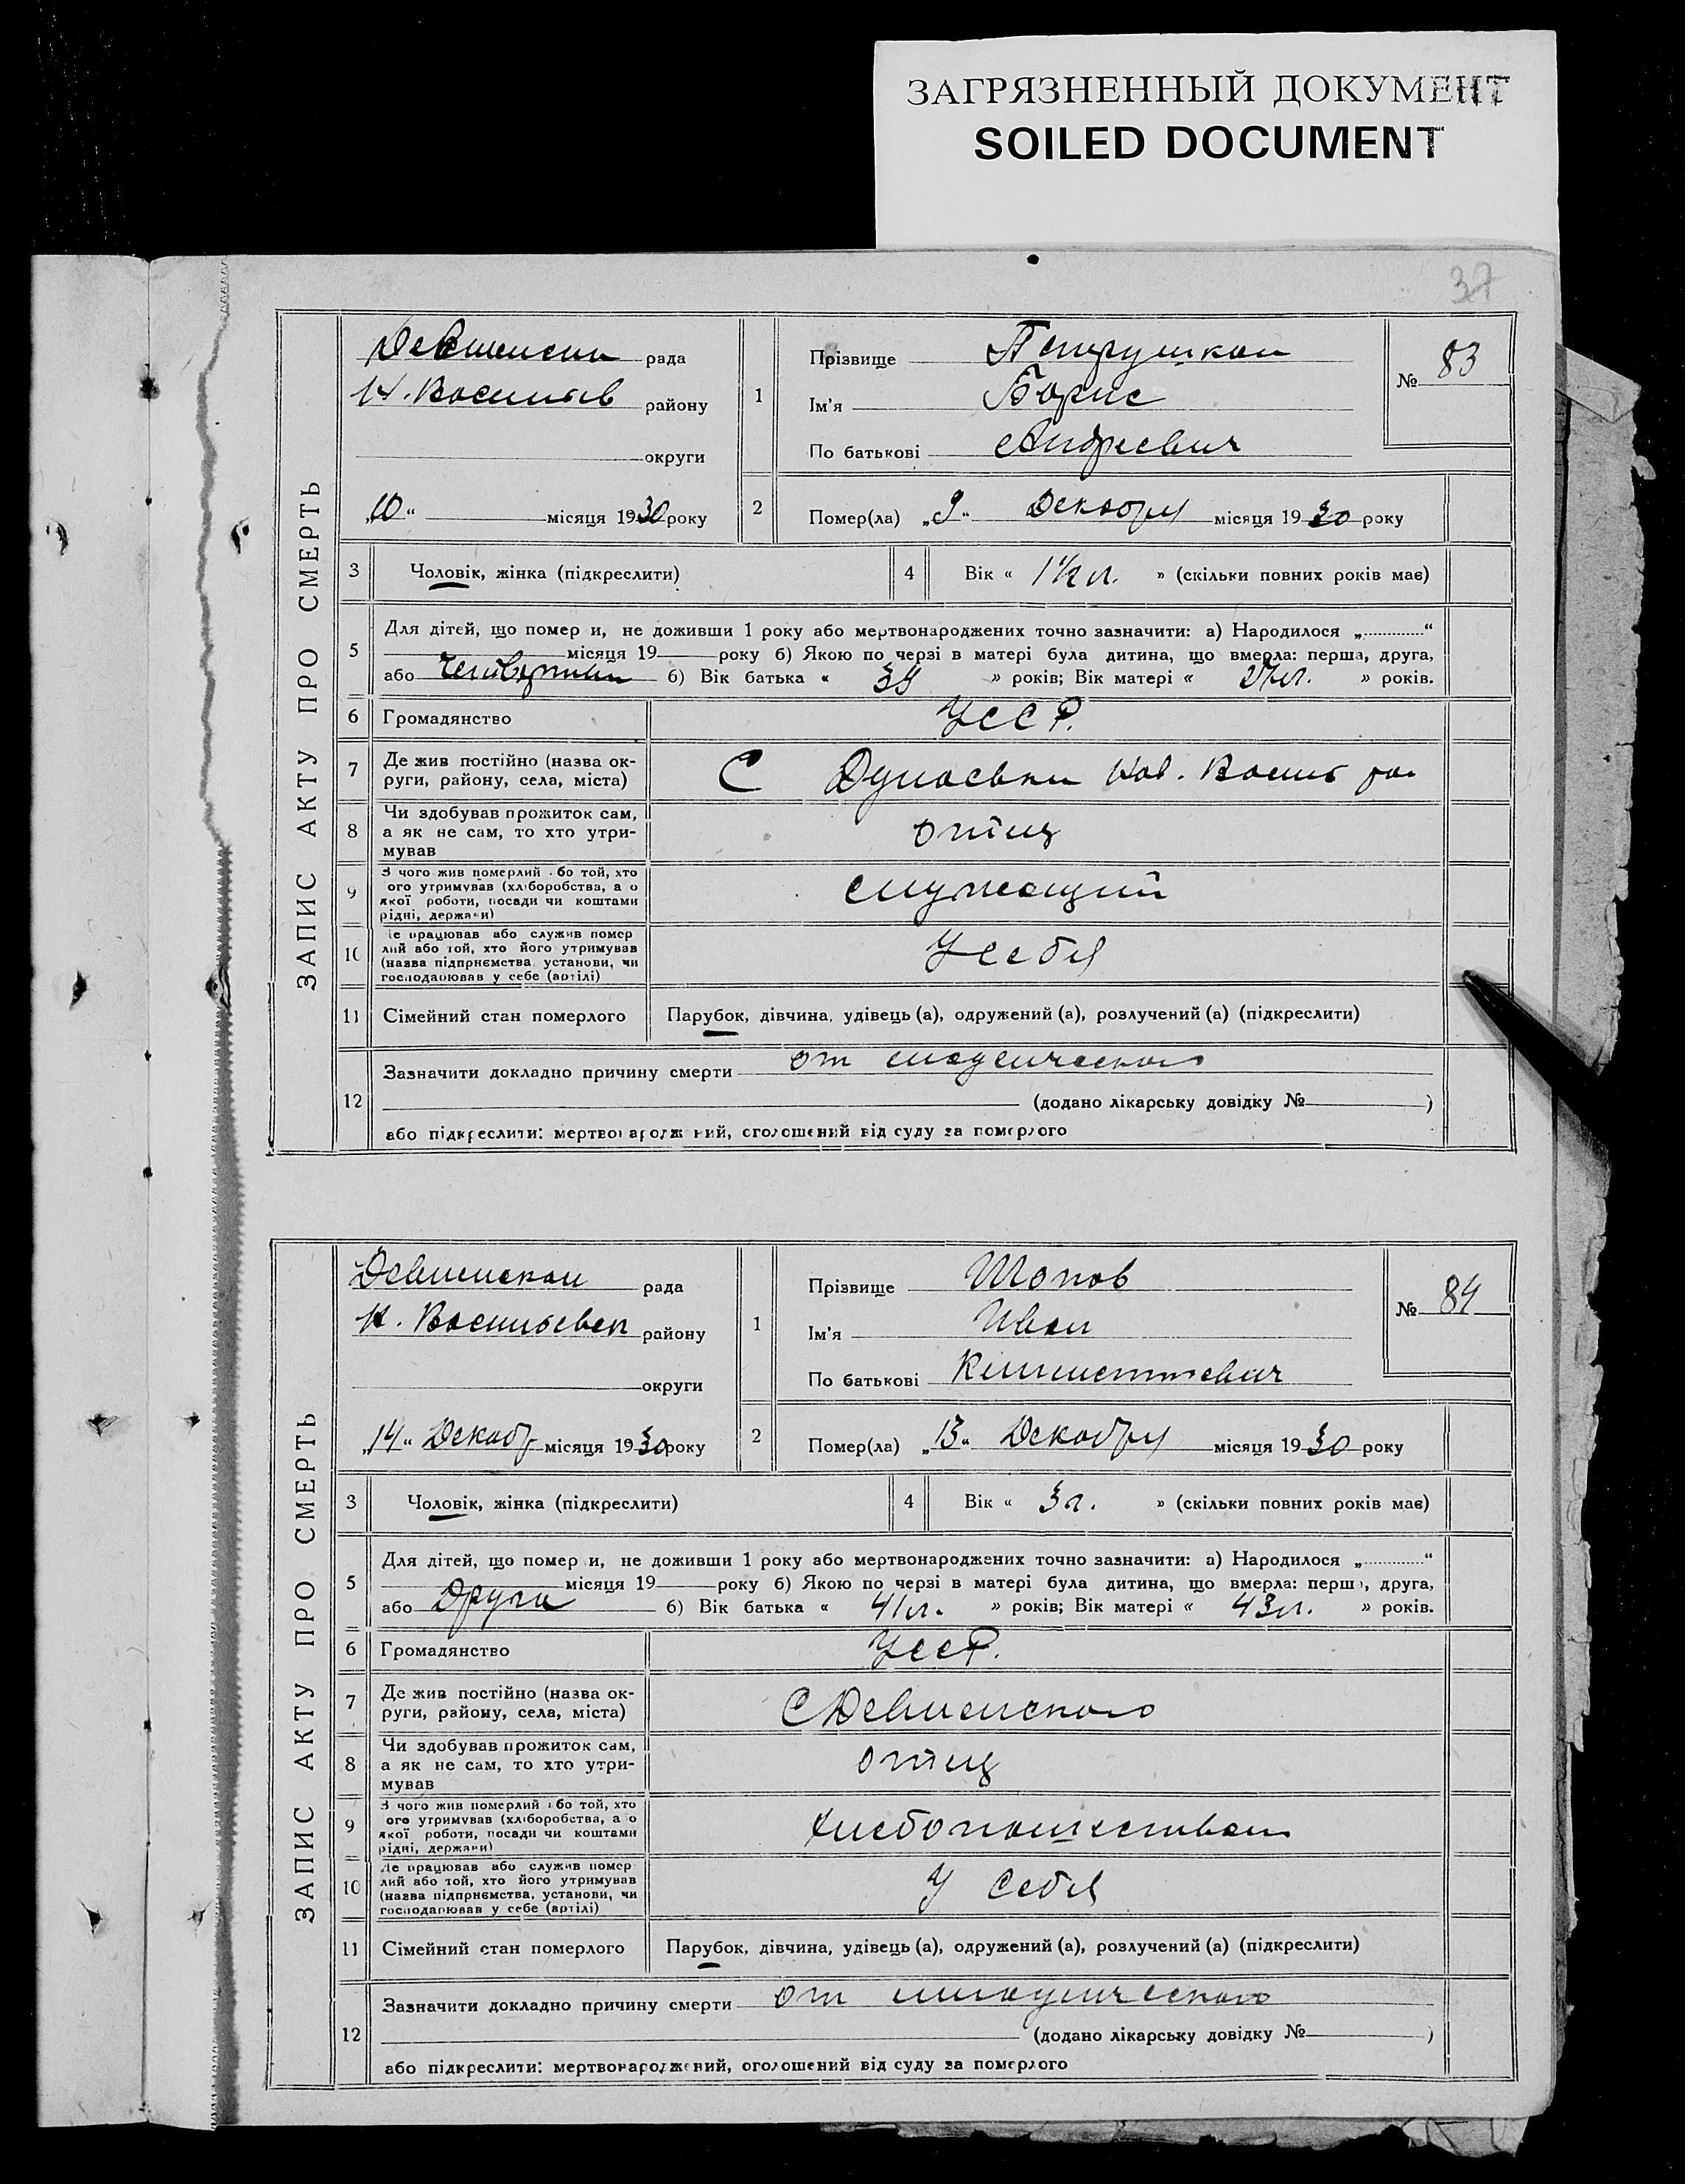 ЗАГРЯЗНЕННЫЙ ДОКУМЕНТ
SOILED DOCUMENT
37
ЗАПИС АКТУ ПРО СМЕРТЬ
рада
Н. Васильев району
округи
„10“ місяця 1930 року
1
Прізвище
Ім'я Борис
По батькові Андреевич
№ 83
2
Помер(ла) „9“ Декабря місяця 1930 року
3
Чоловік, жінка (підкреслити)
4
Вік « 1½ л. » (скільки повних років має)
5
Для дітей, що помер и, не доживши 1 року або мертвонароджених точно зазначити: а) Народилося „ “
місяця 19 року б) Якою по черзі в матері була дитина, що вмерла: перша, друга,
або б) Вік батька « 39 » років; Вік матері « л. » років.
6
Громадянство
УССР.
7
Де жив постійно (назва ок-
руги, району, села, міста)
С Дунаевки Нов. Васил ра
8
Чи здобував прожиток сам,
а як не сам, то хто утри-
мував
отец
9
З чого жив померлий або той, хто
ого утримував (хліборобства, а о
якої роботи, посади чи коштами
рідні, держави)
служащий
10
Де працював або служив помер
лий або той, хто його утримував
(назва підприємства, установи, чи
господарював у себе (артілі)
У себя
11
Сімейний стан померлого
Парубок, дівчина, удівець (а), одружений (а), розлучений (а) (підкреслити)
12
Зазначити докладно причину смерти от младенческого
(додано лікарську довідку № )
або підкреслити: мертвонароджений, оголошений від суду за померлого
ЗАПИС АКТУ ПРО СМЕРТЬ
рада
Н. Васильевск району
округи
„14“ Декабр місяця 1930 року
1
Прізвище Шопов
Ім'я Иван
По батькові
№ 84
2
Помер(ла) „13“ Декабря місяця 1930 року
3
Чоловік, жінка (підкреслити)
4
Вік « 3 л. » (скільки повних років має)
5
Для дітей, що помер и, не доживши 1 року або мертвонароджених точно зазначити: а) Народилося „ “
місяця 19 року б) Якою по черзі в матері була дитина, що вмерла: перша, друга,
або Друга б) Вік батька « 41 л. » років; Вік матері « 43 л. » років.
6
Громадянство
УССР.
7
Де жив постійно (назва ок-
руги, району, села, міста)
С
8
Чи здобував прожиток сам,
а як не сам, то хто утри-
мував
отец
9
З чого жив померлий або той, хто
ого утримував (хліборобства, а о
якої роботи, посади чи коштами
рідні, держави)
Хлебопашеством
10
Де працював або служив помер
лий або той, хто його утримував
(назва підприємства, установи, чи
господарював у себе (артілі)
У Себя
11
Сімейний стан померлого
Парубок, дівчина, удівець (а), одружений (а), розлучений (а) (підкреслити)
12
Зазначити докладно причину смерти от младенческого
(додано лікарську довідку № )
або підкреслити: мертвонароджений, оголошений від суду за померлого